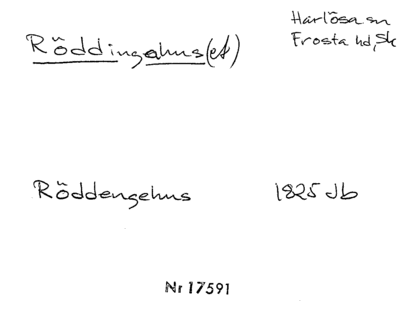 Röddingehus(et)
Harlösa sn
Frosta hd, Sk
Röddengehus 1825 Jb
Nr 17591